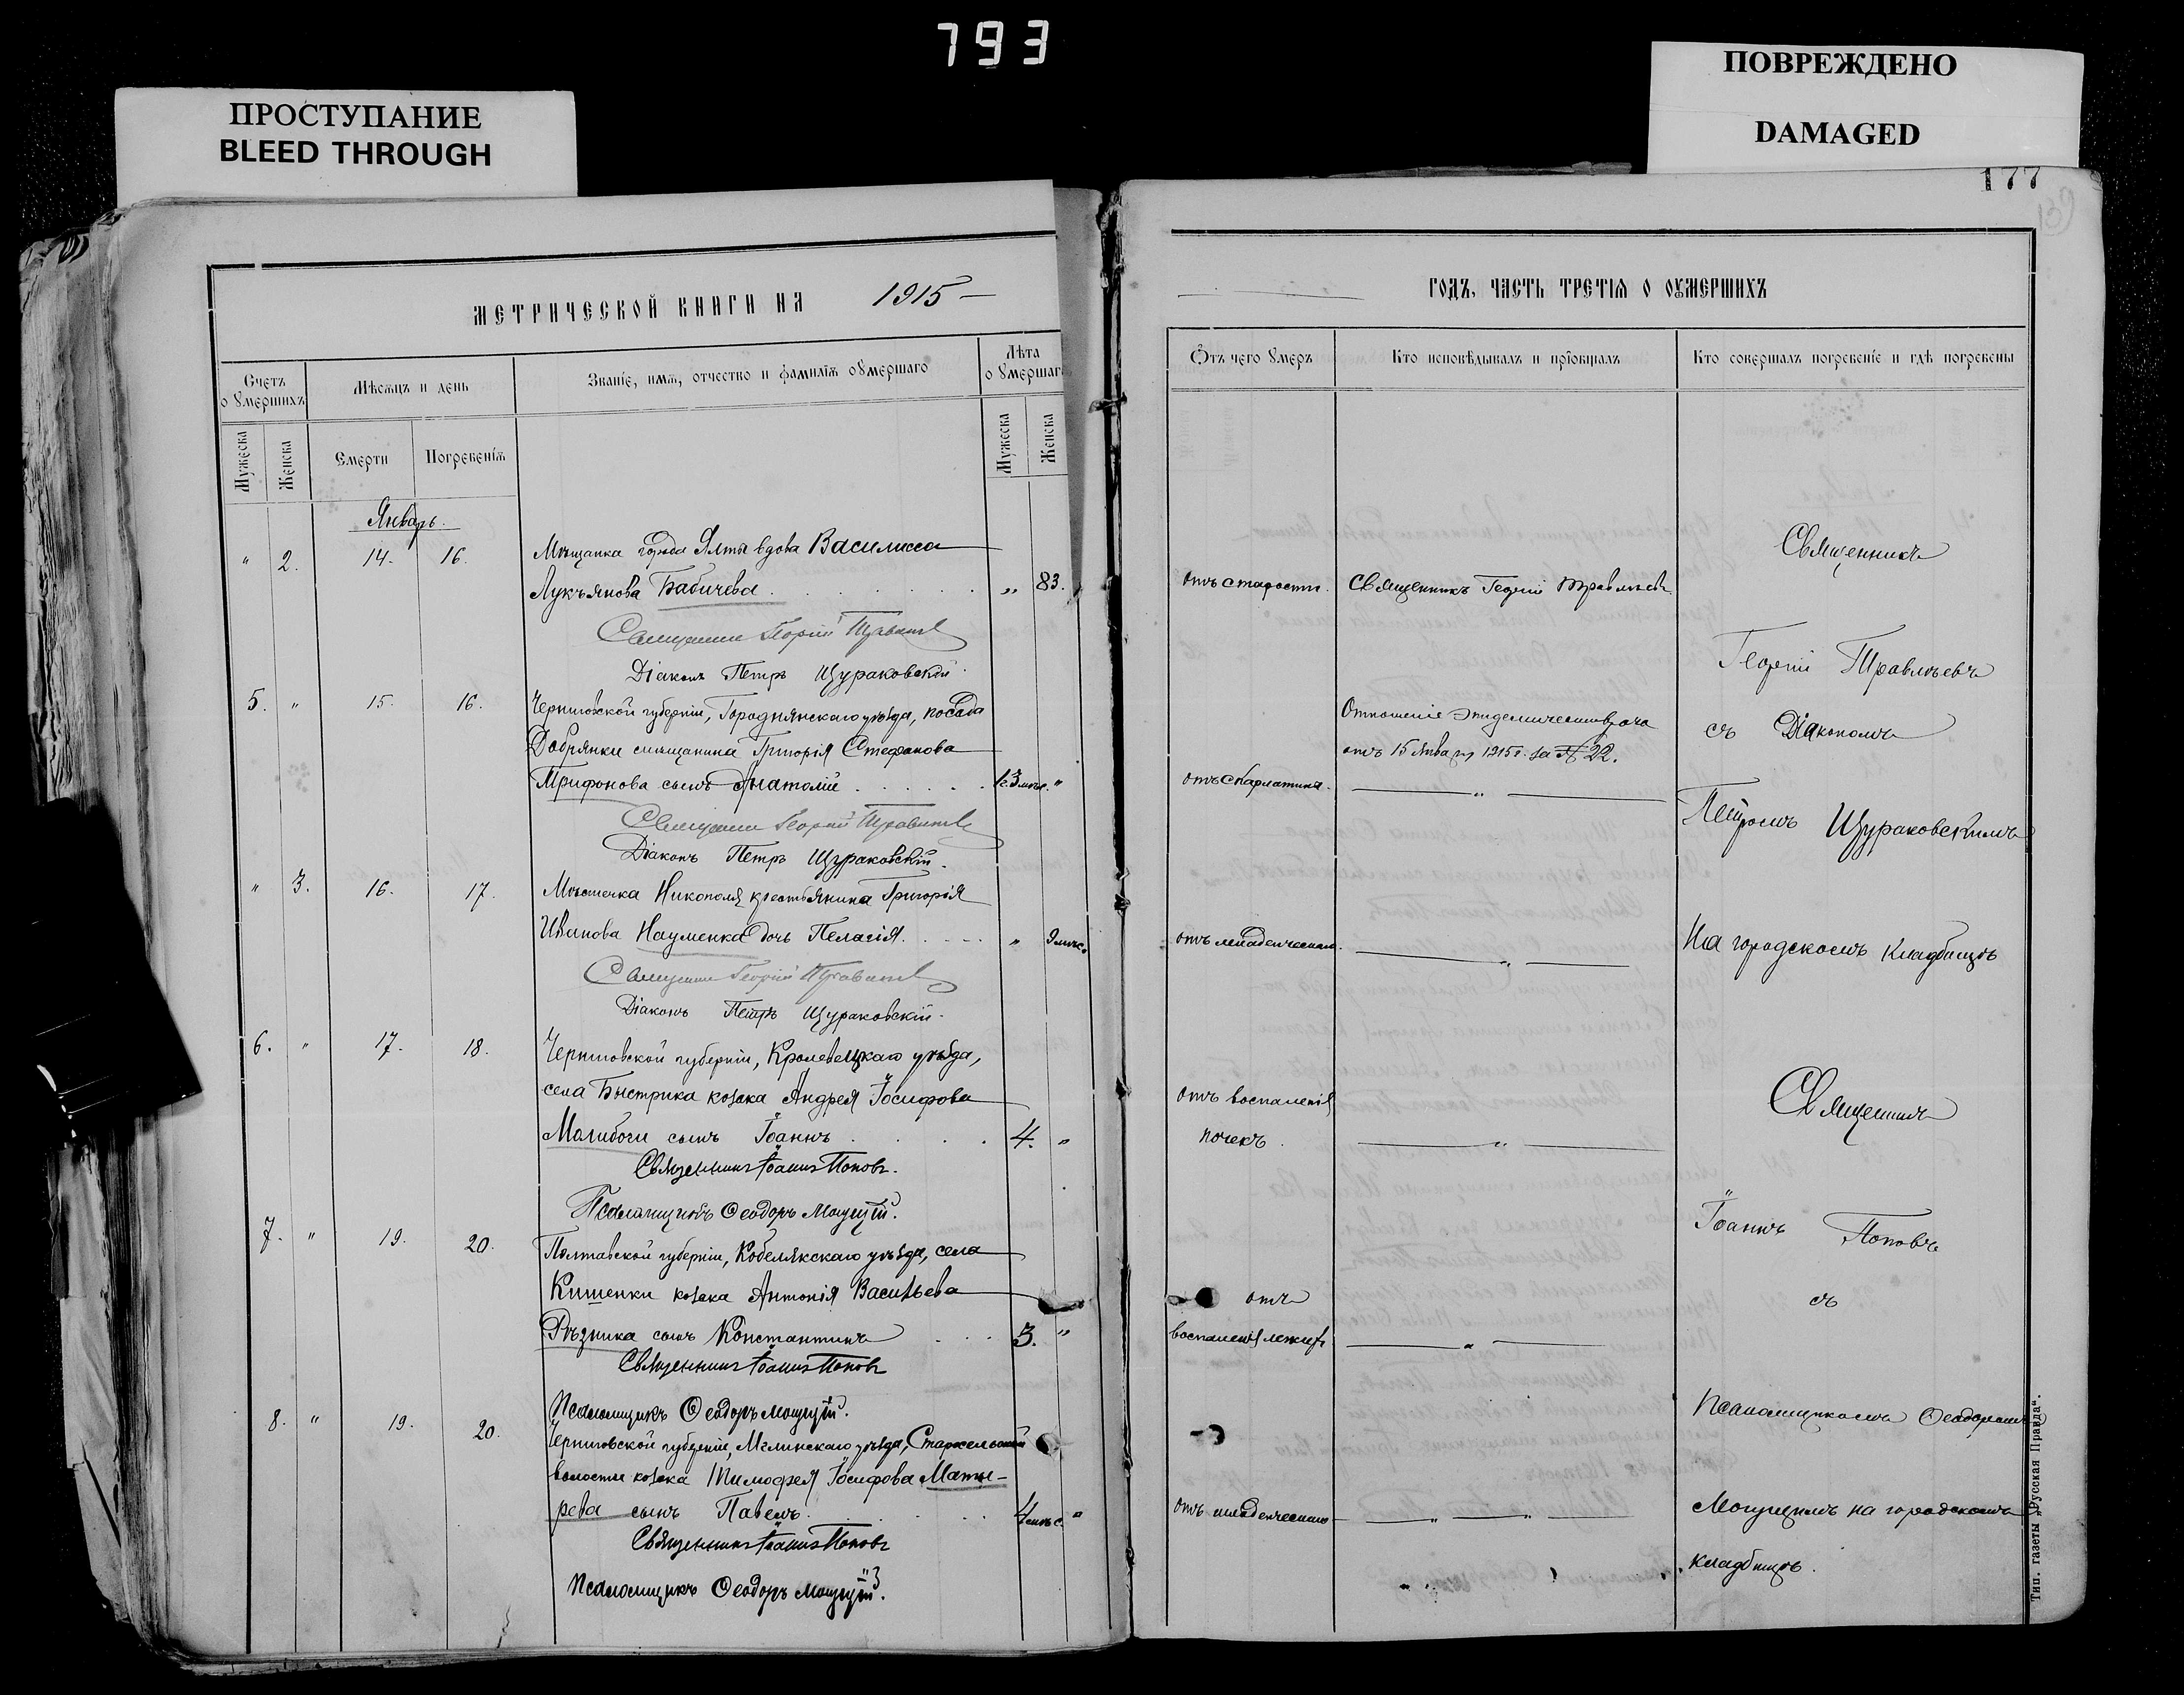 793
ПРОСТУПАНИЕ
BLEED THROUGH
ПОВРЕЖДЕНО
DAMAGED
177
МЕТРИЧЕСКОЙ КНИГИ НА 1915
Счетъ о умершихъ
Мѣсяцъ и день
Званіе, имя, отчество и фамилія оумершаго
Лѣта о умершаг
Мужеска
Женска
Смерти
Погребенія
Мужеска
Женска
Январь.
" 2. 14. 16. Мѣщанка города Ялты вдова Василисса
Лукъянова Бабичева . . . . . . „ 83.
Священникъ Георгій Травлѣевъ
Діаконъ Петръ Щураковскій.
5. " 15. 16. Черниговской губерніи, Городнянскаго уѣзда, посада
Добрянки мѣщанина Григорія Стефанова
Трифонова сынъ Анатолій . . . . . . 1г.3мѣс. "
Священникъ Георгій Травлѣевъ
Діаконъ Петръ Щураковскій.
" 3. 16. 17. Мѣстечка Никополя крестьянина Григорія
Иванова Науменка дочь Пелагія. . . . . " 9мѣс.
Священникъ Георгій Травлѣевъ
Діаконъ Петръ Щураковскій.
6. " 17. 18. Черниговской губерніи, Кролевецкаго уѣзда,
села Быстрика козака Андрея Іосифова
Малибоги сынъ Іоаннъ . . . . 4. "
Священникъ Іоаннъ Поповъ.
Псаломщикъ Ѳеодоръ Могущій.
7. " 19. 20. Полтавской губерніи, Кобелякскаго уѣзда, села
Кишенки козака Антонія Васильева
Рѣзника сынъ Константинъ . . . 3. "
Священникъ Іоаннъ Поповъ
Псаломщикъ Ѳеодоръ Могущій.
8. " 19. 20. Черниговской губерніи, Мглинскаго уѣзда,
волости козака Тимоѳея Іосифова Маты-
рева сынъ Павелъ. . . . . . 4мѣс. "
Священникъ Іоаннъ Поповъ
Псаломщикъ Ѳеодоръ Могущій.
ГОДЪ, ЧАСТЬ ТРЕТІЯ О ОУМЕРШИХЪ
Отъ чего умеръ
Кто исповѣдывалъ и пріобщалъ
Кто совершалъ погребеніе и гдѣ погребены
отъ старости. Священникъ Георгій Травлѣевъ.
Отношеніе эпидемическаго врача
отъ 15 января 1915 г. за № 22.
отъ скарлатины. "
отъ младенческаго. "
отъ воспаленія
почекъ. "
отъ
воспаленія легкихъ "
отъ младенческаго " "
Священникъ
Георгій Травлѣевъ
съ Діакономъ
Петромъ Щураковскимъ
На городскомъ кладбищѣ
Священникъ
Іоаннъ Поповъ
съ
Псаломщикомъ Ѳеодоромъ
Могущимъ на городскомъ
кладбищѣ.
Тип. газеты „Русская Правда“.